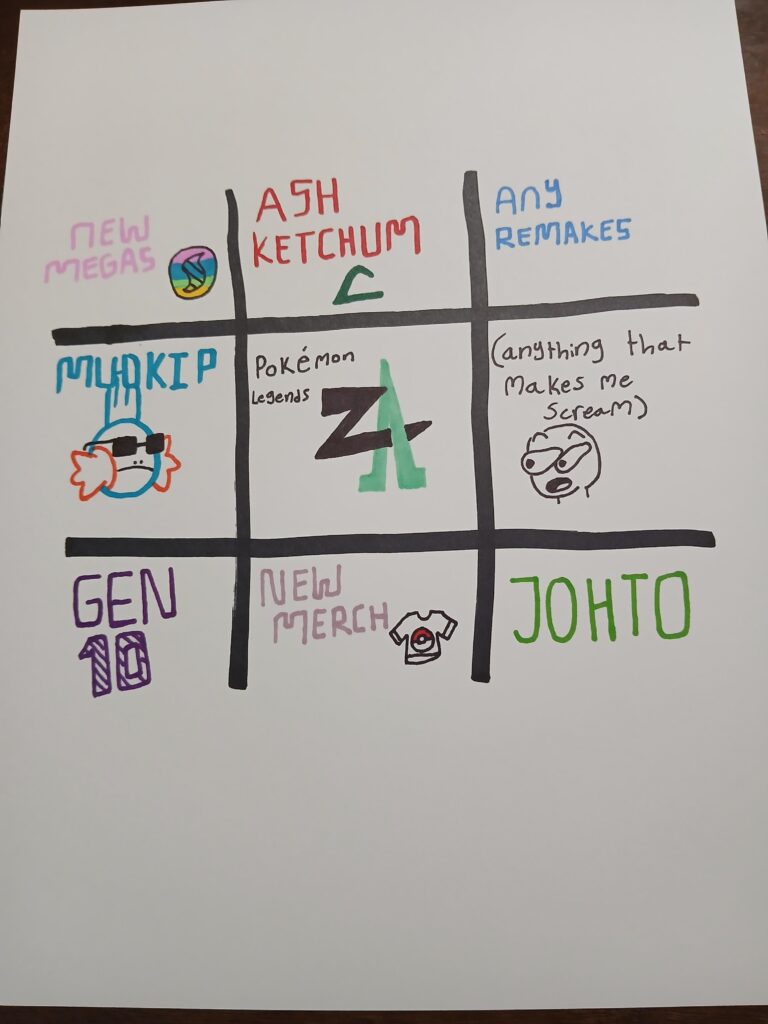 NEW
MEGAS
ASH
KETCHUM
ANY
REMAKES
MUDKIP
Pokémon
Legends
ZA
(anything that
makes me
scream)
GEN
10
NEW
MERCH
JOHTO